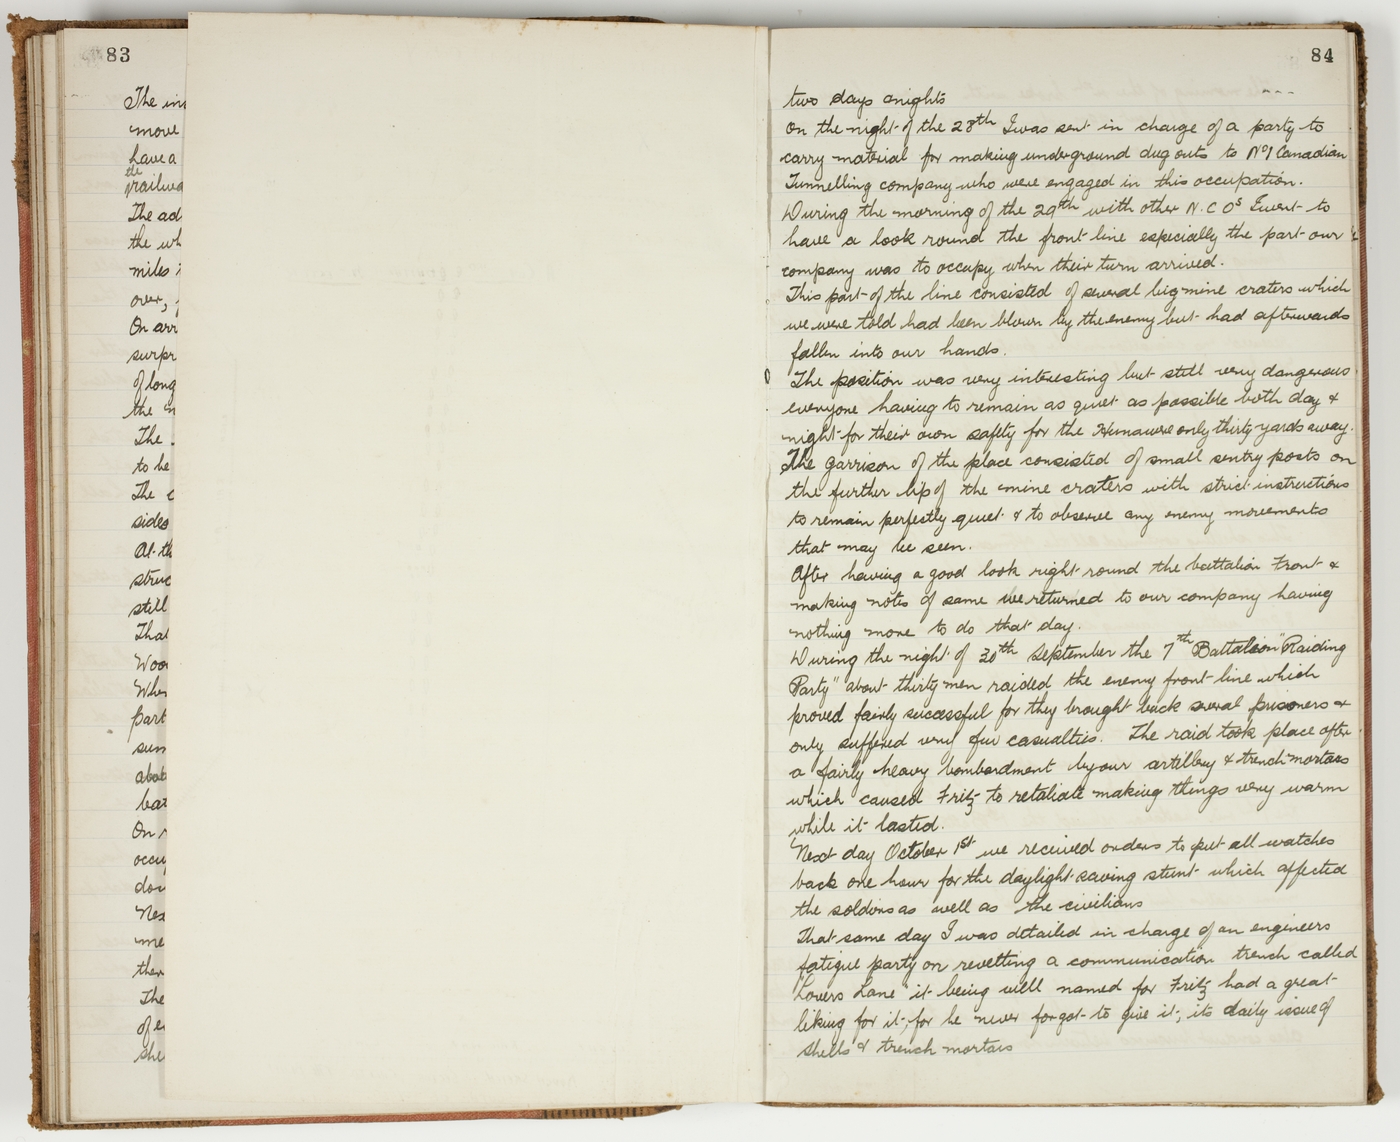 83
The in
move
have a
the
railwa
The ad
the wh
miles
over,
On arr
surpr
of long
the
The
to he
The
sides
At th
struc
still
That
Woo
When
part
sum
abou
bat
On
occu
dow
Nex
me
then
The
of e
she
84
two days & nights
On the night of the 28th I was sent in charge of a party to
carry material for making underground dug outs to No 1 Canadian
Tunnelling company who were engaged in this occupation.
During the morning of the 29th with other N.C.Os I went to
have a look round the front line especially the part our
company was to occupy when their turn arrived.
This part of the line consisted of several big mine craters which
we were told had been blown by the enemy but had afterwards
fallen into our hands.
The position was very interesting but still very dangerous
everyone having to remain as quiet as possible both day &
night for their own safety for the Huns were only thirty yards away.
The garrison of the place consisted of small sentry posts on
the further lip of the mine craters with strict instructions
to remain perfectly quiet & to observe any enemy movements
that may be seen.
After having a good look right round the battalion Front &
making notes of same we returned to our company having
nothing more to do that day.
During the night of 30th September the 7th Battalion "Raiding
Party" about thirty men raided the enemy front line which
proved fairly successful for they brought back several prisoners &
only suffered very few casualties. The raid took place after
a fairly heavy bombardment by our artillery & trench mortars
which caused Fritz to retaliate making things very warm
while it lasted.
Next day October 1st we received orders to put all watches
back one hour for the daylight saving stunt which affected
the soldiers as well as the civilians
That same day I was detailed in charge of an engineers
fatigue party on revetting a communication trench called
"Lovers Lane" it being well named for Fritz had a great
liking for it, for he never forgot to give it, its daily issue of
shells & trench mortars